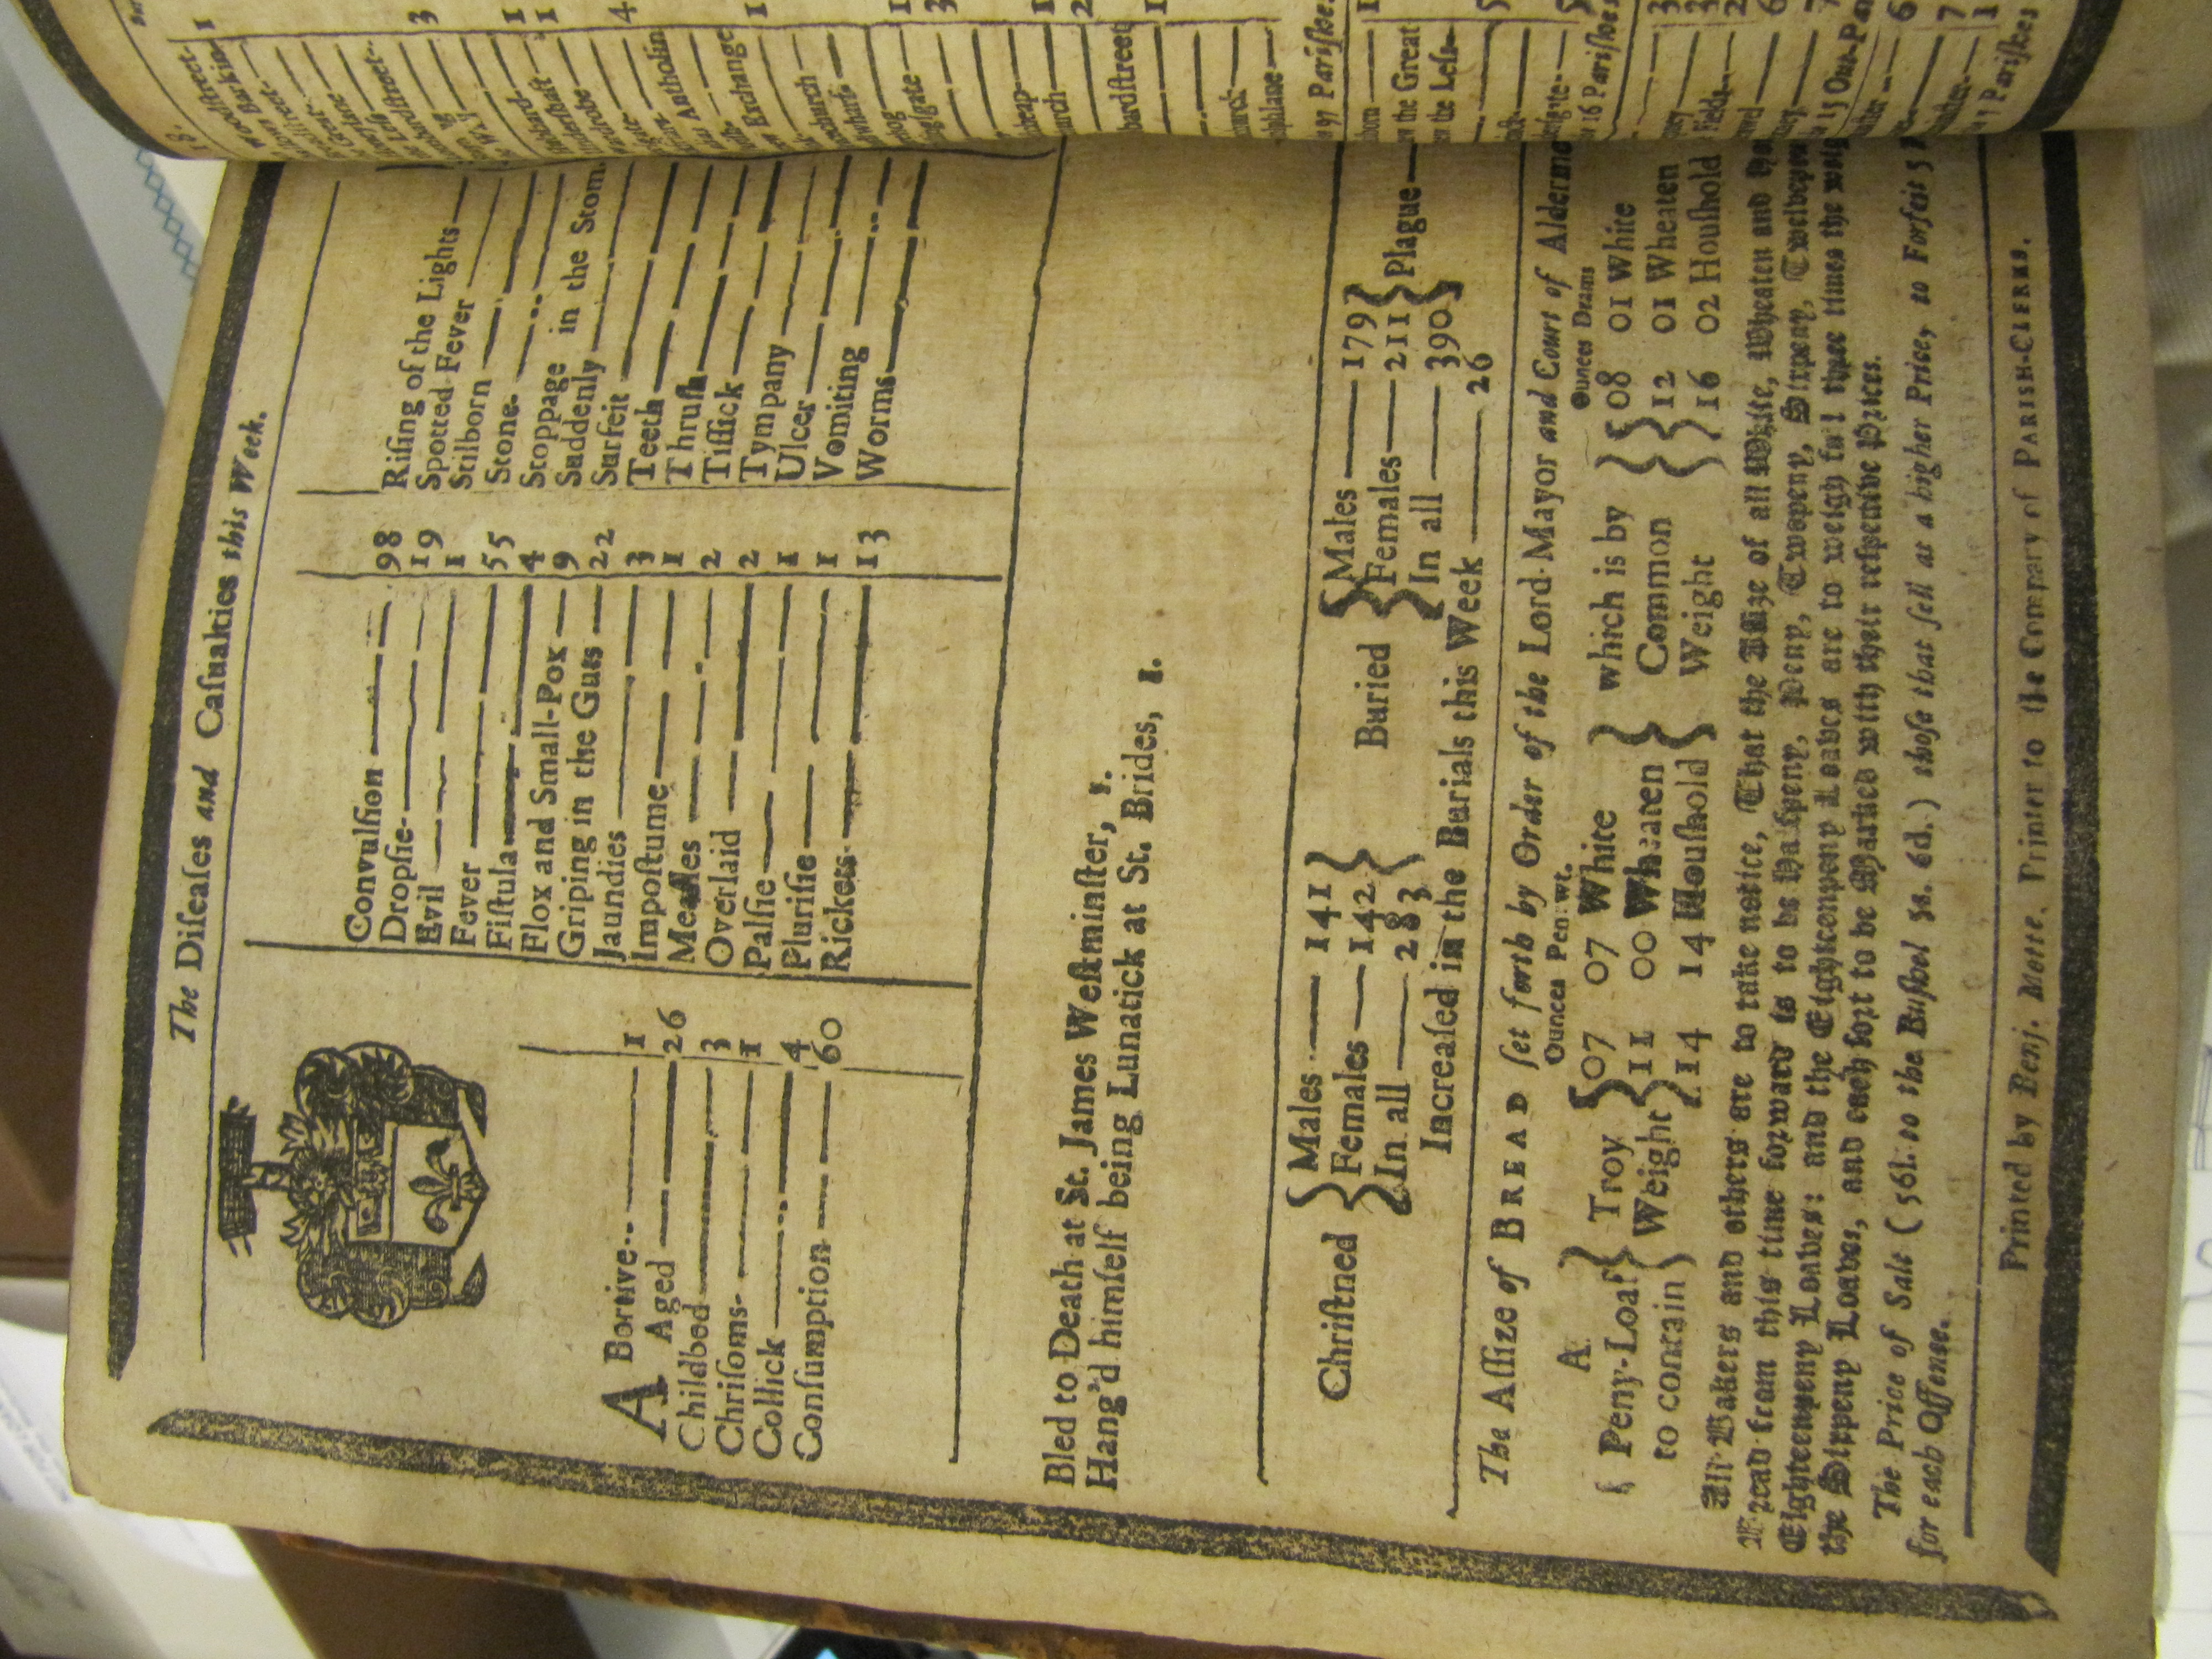 The Diſeaſes and Caſualties this Week.
A Bortive 1
Aged 26
Childbed 3
Chriſoms 1
Collick 4
Conſumption 60
Convulſion 98
Dropſie 19
Evil 1
Fever 55
Fiſtula 4
Flox and Small-Pox 9
Griping in the Guts 22
Jaundies 3
Impoſtume 1
Meaſles 2
Overlaid 2
Palſie 1
Pluriſie 1
Rickets 13
Riſing of the Lights
Spotted Fever
Stilborn
Stone
Stoppage in the Stom
Suddenly
Surfeit
Teeth
Thruſh
Tiſſick
Tympany
Ulcer
Vomiting
Worms
Bled to Death at St. James Weſtminſter, 1.
Hang'd himſelf being Lunatick at St. Brides, 1.
Chriſtned { Males 141 Females 142 In all 283 }
Buried { Males 179 Females 211 In all 390 } Plague
Increaſed in the Burials this Week 26
The Aſſize of BREAD ſet forth by Order of the Lord Mayor and Court of Alderme
Ounces Pen: wt. Ounces Drams
A Peny-Loaf to contain } Troy Weight { 07 07 White } which is by Common Weight { 08 01 White
11 00 Wheaten 12 01 Wheaten
14 14 Houſhold 16 02 Houſhold
All Bakers and others are to take notice, That the Aſſize of all White, Wheaten and Ho
Bread from this time forward is to be Halfpeny, Peny, Twopeny, Sixpeny, Twelvepen
Eighteenpeny Loaves: and the Eighteenpeny Loaves are to weigh full three times the weig
the Sixpeny Loaves, and each ſort to be Marked with their reſpective Prices.
The Price of Salt (56l. to the Buſhel 5s. 6d.) thoſe that ſell at a higher Price, to Forfeit 5
for each Offenſe.
Printed by Benj. Motte, Printer to the Company of PARISH-CLERKS.
Woodſtreet 1
Barkin
3
1
1
4
Antholin
Exchange 1
1
3
1
2
bardſtreet 1
97 Pariſhes
the Great
the Leſs 5
16 Pariſhes
3
3
Fields 2
6
7
15 Out-Pa
6
7
1
Pariſhes